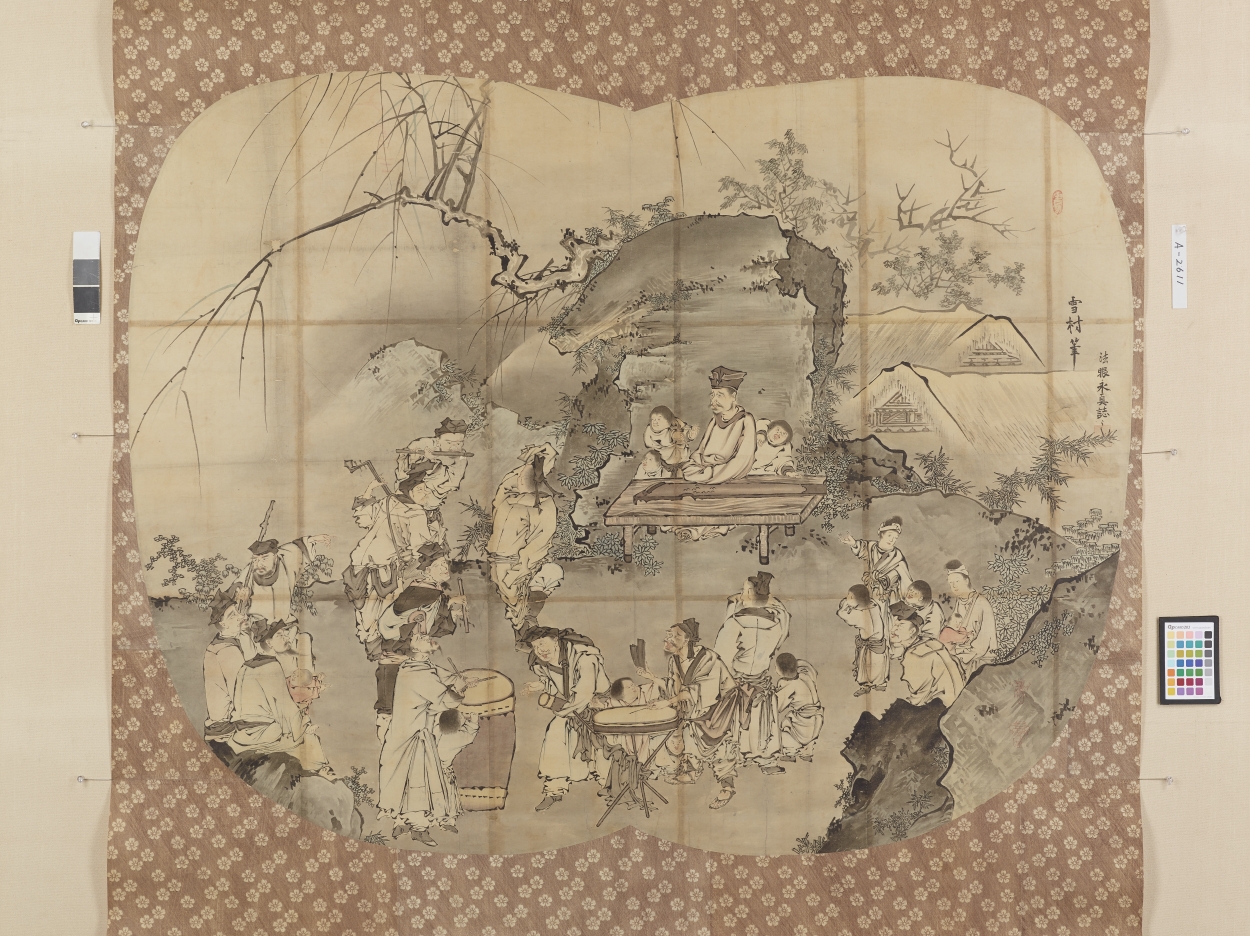 雪村筆
法眼永真誌
A-2611